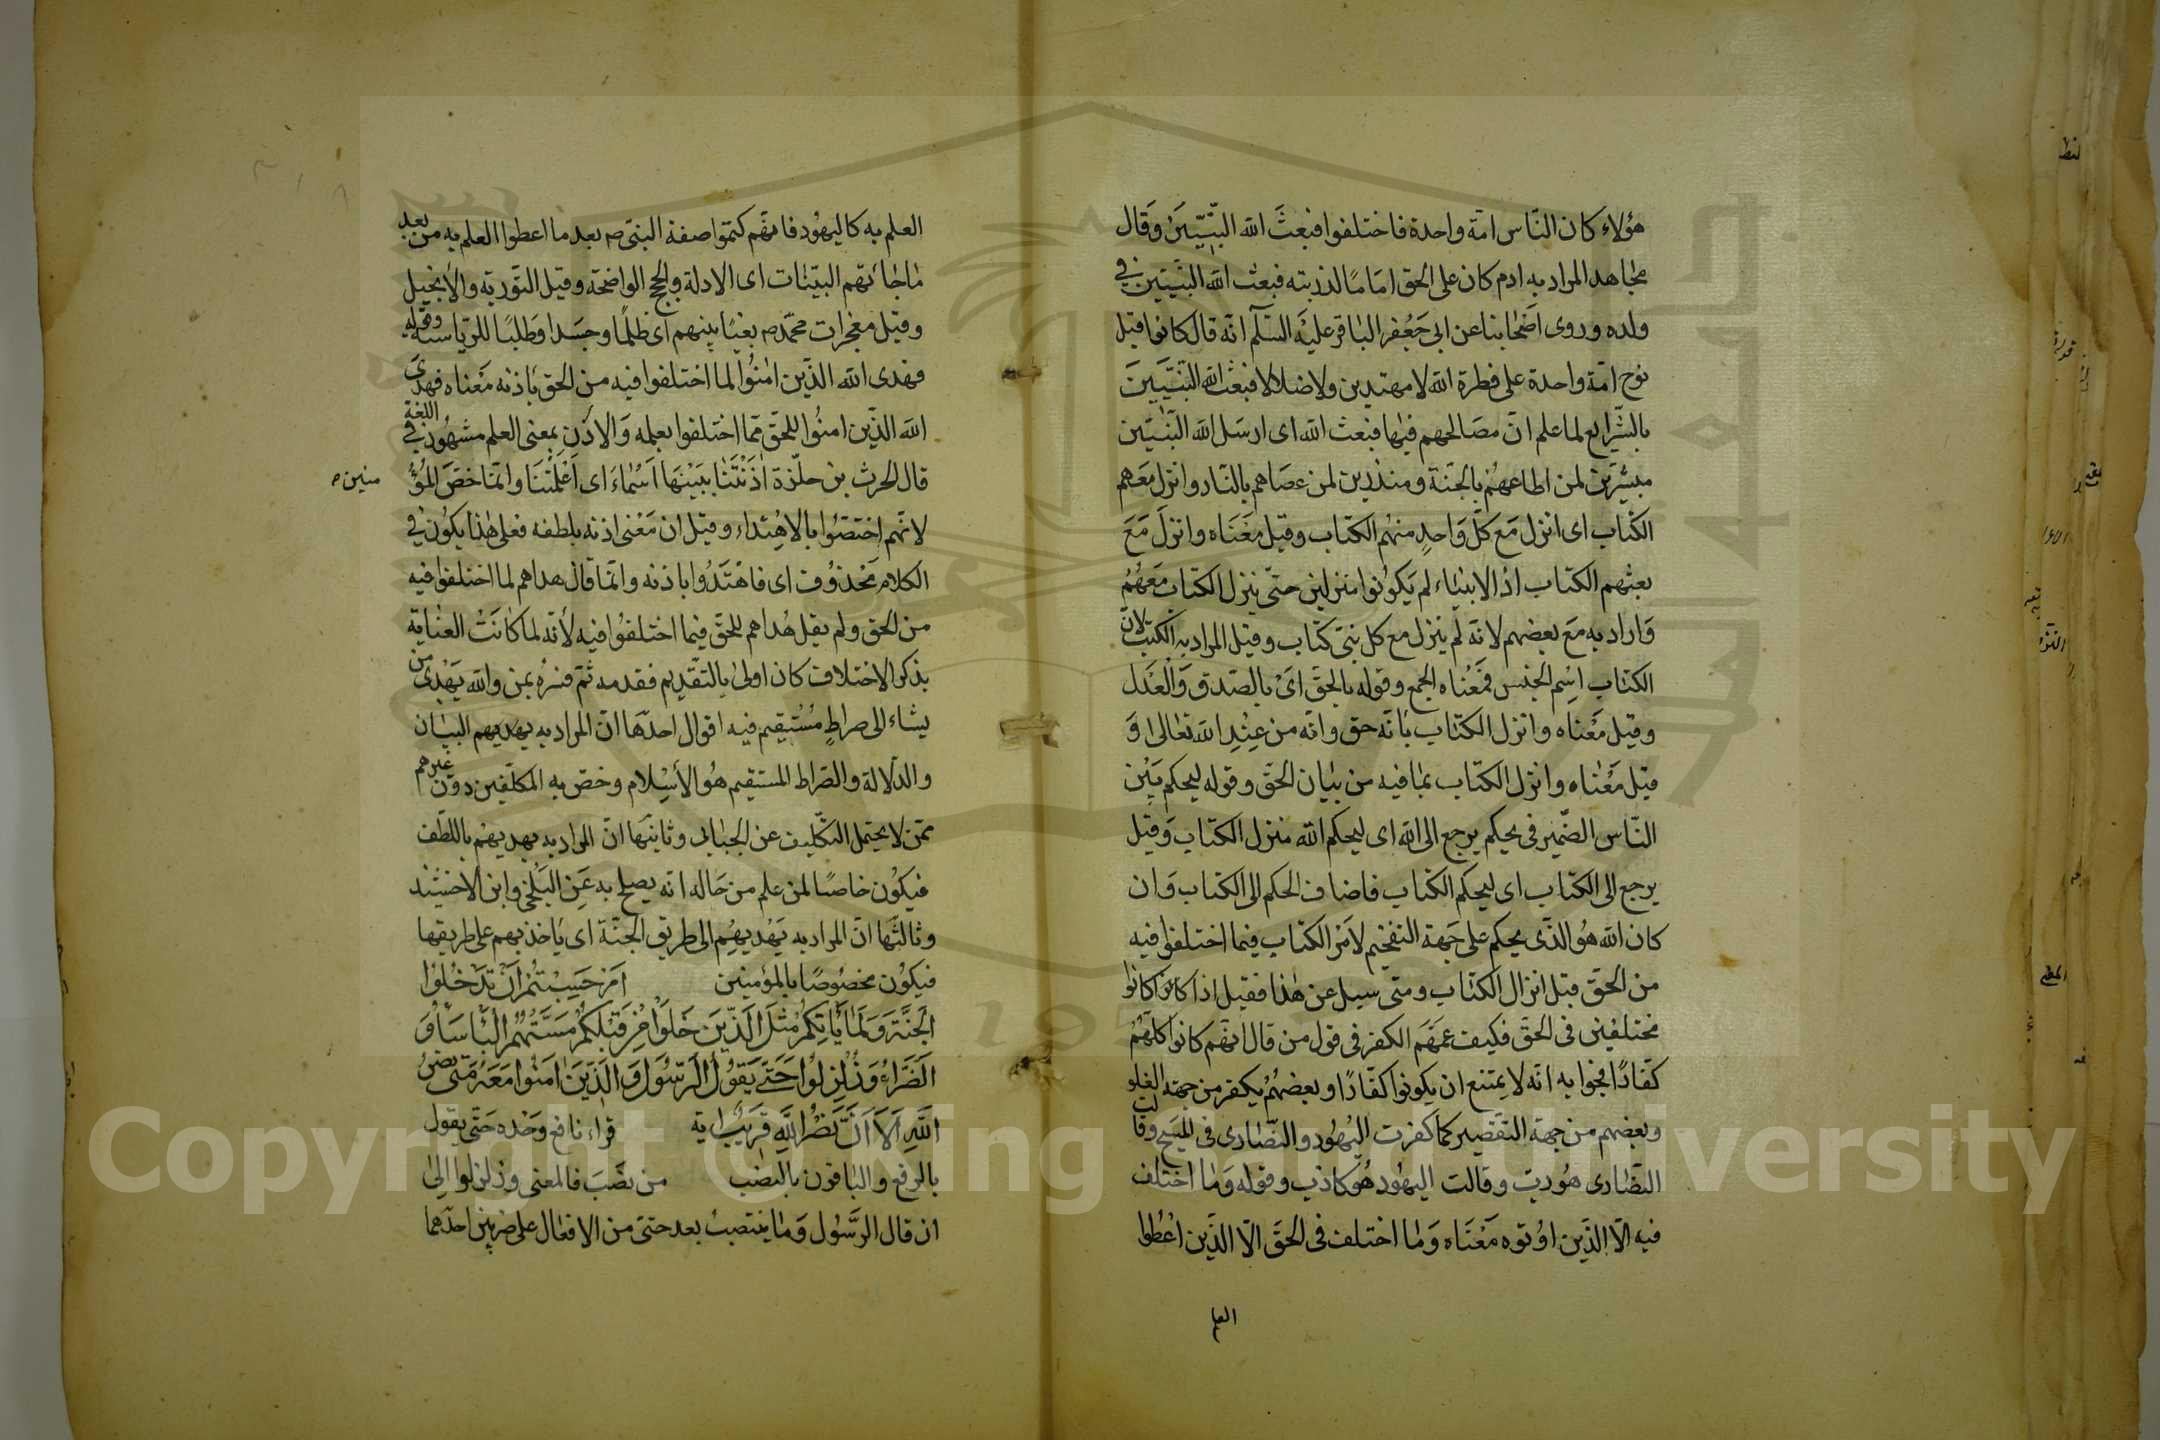 هؤلاء كان الناس امة واحدة فاختلفوا فبعث الله النبيين وقال
مجاهد المراد به ادم كان على الحق اماما لذريته فبعث الله النبيين في
ولده وروى اصحابنا عن ابي جعفر الباقر عليه السلم انه قال كانوا قبل
نوح امة واحدة على فطرة الله لا مهتدين ولا ضلالا فبعث الله النبيين
بالشرايع لما علم ان مصالحهم فيها فبعث الله اى ارسل الله النبيين
مبشرين لمن اطاعهم بالجنة ومنذرين لمن عصاهم بالنار وانزل معهم
الكتاب اى انزل مع كل واحد منهم الكتاب وقيل معناه وانزل مع
بعثهم الكتاب اذ الانبياء لم يكونوا منزلين حتى ينزل الكتاب معهم
واراد به مع بعضهم لانه لم ينزل مع كل نبى كتاب وقيل المراد به الكتب لان
الكتاب اسم الجنس فمعناه الجمع وقوله بالحق اى بالصدق والعدل
وقيل معناه وانزل الكتاب بانه حق وانه من عند الله تعالى و
قيل معناه وانزل الكتاب بما فيه من بيان الحق وقوله ليحكم بين
الناس الضمير في يحكم يرجع الى الله اى ليحكم الله منزل الكتاب وقيل
يرجع الى الكتاب اى ليحكم الكتاب فاضاف الحكم الى الكتاب وان
كان الله هو الذى يحكم على جهة التفخيم لامر الكتاب فيما اختلفوا فيه
من الحق قبل انزال الكتاب ومتى سيل عن هذا فقيل اذا كانوا كانوا
مختلفين في الحق فكيف عمهم الكفر في قول من قال انهم كانوا كلهم
كفارا فجوابه انه لا يمتنع ان يكونوا كفارا وبعضهم يكفر من جهة الغلو
وبعضهم من جهة التقصير كما كفرت اليهود والنصارى في المسيح وقالت
النصارى هو رب وقالت اليهود هو كاذب وقوله وما اختلف
فيه الا الذين اوتوه معناه وما اختلف في الحق الا الذين اعطوا
العلم
العلم به كاليهود فانهم كتموا صفة النبى ص بعد ما اعطوا العلم به من بعد
ما جائتهم البينات اى الادلة والحجج الواضحة وقيل التورية والانجيل
وقيل معجزات محمد ص بغيا بينهم اى ظلما وحسدا وطلبا للرياسة وقوله
فهدى الله الذين امنوا لما اختلفوا فيه من الحق باذنه معناه فهدى
الله الذين امنوا للحق مما اختلفوا بعلمه والاذن بمعنى العلم مشهور في اللغة
قال الحرث بن حلزة اذنتنا ببينها اسماء اى اعلمتنا وانما خص المؤ
منين ص
لانهم اختصوا بالاهتداء وقيل ان معنى اذنه بلطفه فعلى هذا يكون في
الكلام محذوف اى فاهتدوا باذنه وانما قال هداهم لما اختلفوا فيه
من الحق ولم يقل هداهم للحق فيما اختلفوا فيه لانه لما كانت العناية
بذكر الاختلاف كان اولى بالتقديم فقدمه ثم فسره بمن والله يهدى من
يشاء الى صراط مستقيم فيه اقوال احدها ان المراد به يهديهم البيان
والدلالة والصراط المستقيم هو الاسلام وخص به المكلفين دون غيرهم
ممن لا يحتمل التكليف عن الجبايى وثانيها ان المراد به يهديهم باللطف
فيكون خاصا لمن علم من حاله انه يصلح به عن البلخى وابن الاخشيد
وثالثها ان المراد به يهديهم الى طريق الجنة اى ياخذ بهم على طريقها
فيكون مخصوصا بالمؤمنين ام حسبتم ان تدخلوا
الجنة ولما ياتكم مثل الذين خلوا من قبلكم مستهم البأساء و
الضراء وزلزلوا حتى يقول الرسول والذين امنوا معه متى نصر
الله الا ان نصر الله قريب اية قراء نافع وحده حتى يقول
بالرفع والباقون بالنصب من نصب فالمعنى وزلزلوا الى
ان قال الرسول وما ينتصب بعد حتى من الافعال على ضربين احدهما
Copyright © King Saud University